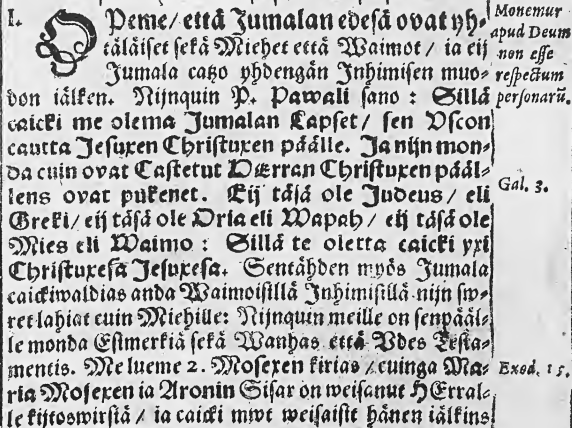 I. OPeme/ että Jumalan edesä ovat yh⸗
täläiset sekä Miehet että Waimot / ia eij
Jumala catzo yhdengän Inhimisen muo⸗
don iälken. Nijnquin P. Pawali sano : Sillä
caicki me olema Jumalan Lapset/ sen Uscon
cautta Jesuxen Christuxen päälle. Ja nijn mon⸗
da cuin ovat Castetut HErran Christuxen pääl⸗
lens ovat pukenet. Eij täsä ole Judeus/ eli
Greki/ eij täsä ole Oria eli Wapah/ eij täsä ole
Mies eli Waimo : Sillä te oletta caicki yxi
Christuxesa Jesuxesa. Sentähden myös Jumala
caickiwaldias anda Waimoisillä Inhimisillä nijn sw⸗
ret lahiat cuin Miehille: Nijnquin meille on senpääl⸗
le monda Esimerkiä sekä Wanhas että Vdes Testa⸗
mentis. Me lueme 2. Mosexen kirias / cuinga Ma⸗
ria Mosexen ia Aronin Sisar on weisanut HErral⸗
le kijtoswirsiä / ia caicki mwt weisaisit hänen iälkins
Monemur
apud Deum
non esse
respectum
personarũ.
Gal. 3.
Exod. 15.